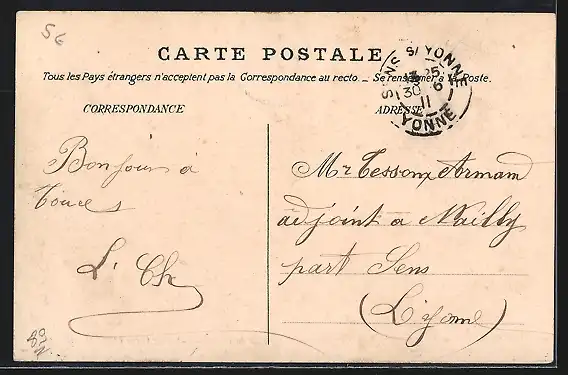 56
CARTE POSTALE
Tous les Pays étrangers n'acceptent pas la Correspondance au recto. _ Se renseigner à la Poste.
SENS S/ YONNE
25
30 6
11
YONNE
CORRESPONDANCE
ADRESSE
Bonjour à
toutes
L. Ch
Mr Tessoux Armand
adjoint a Nailly
part Sens
(L'yonne)
89